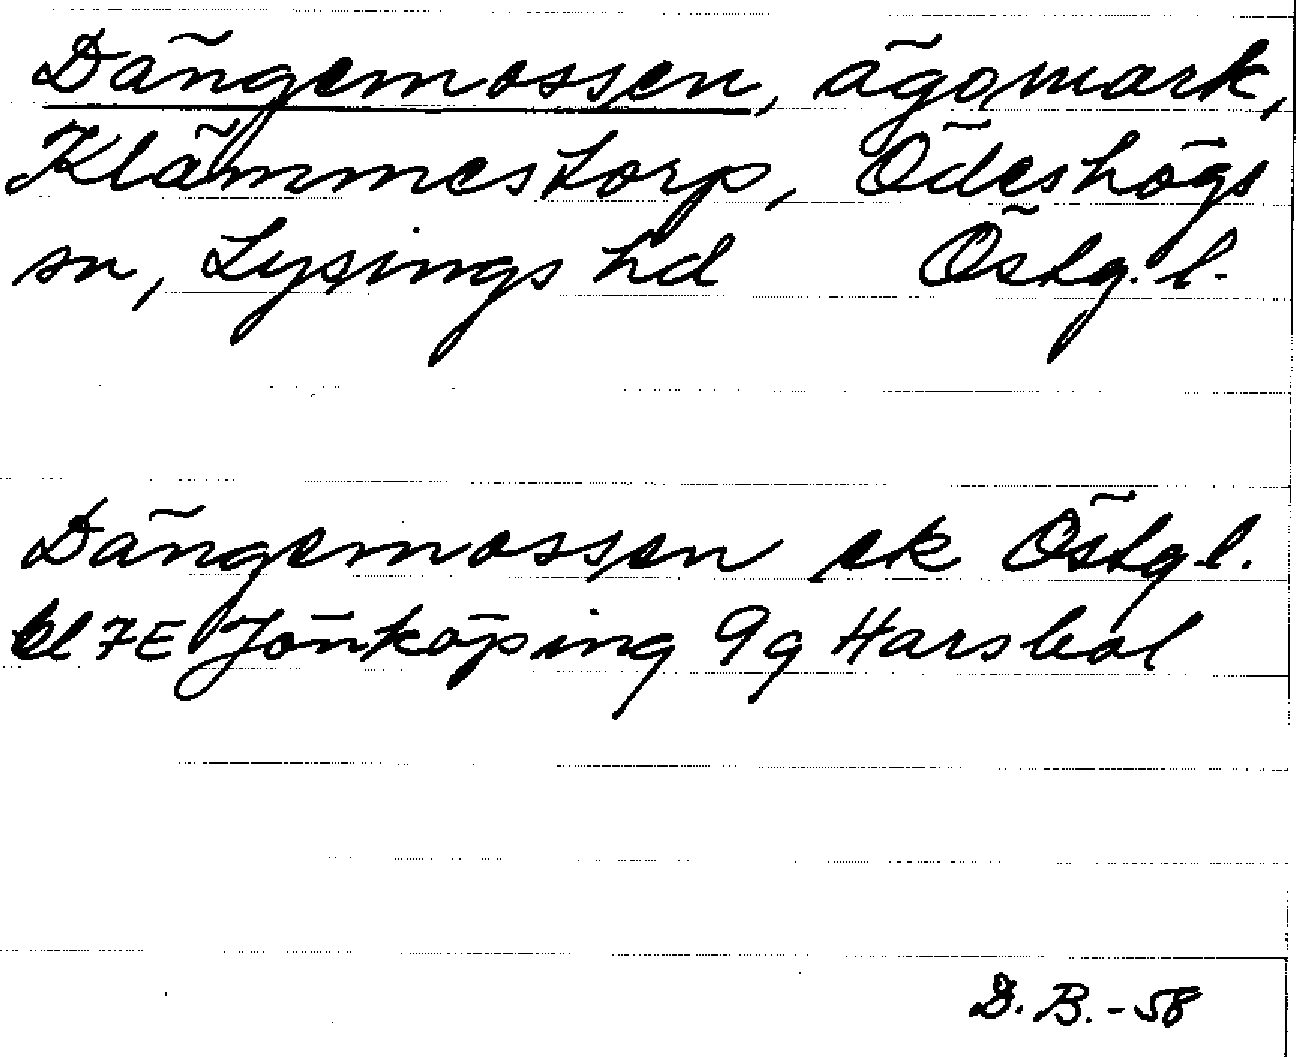 Dängemossen, ägomark,
Klämmestorp, Ödeshögs
sn, Lysings hd Östg. l.
Dängemossen ek Östg.l.
bl 7E Jönköping 9g Harsbol
D.B.-58